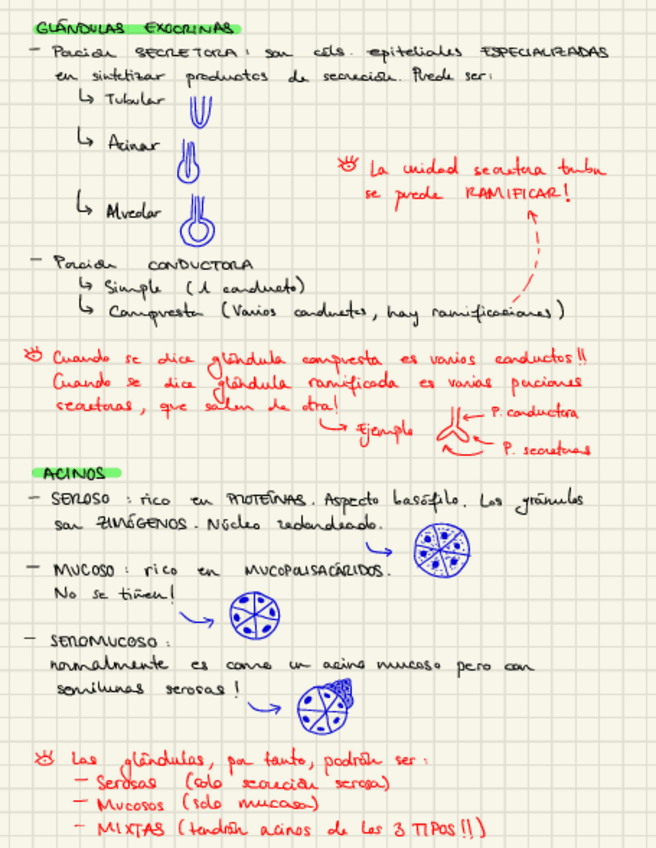 GLÁNDULAS EXOCRINAS
- Porción SECRETORA: son céls. epiteliales ESPECIALIZADAS
en sintetizar productos de secreción. Puede ser:
↳ Tubular
↳ Acinar
↳ Alveolar
La unidad secretora tmbn
se puede RAMIFICAR!
- Porción CONDUCTORA
↳ Simple (1 conducto)
↳ Compuesta (Varios conductos, hay ramificaciones)
Cuando se dice glándula compuesta es varios conductos!!
Cuando se dice glándula ramificada es varias porciones
secretoras, que salen de otra!
↳ Ejemplo
P. conductora
P. secretoras
ACINOS
- SEROSO: rico en PROTEÍNAS. Aspecto basófilo. Los gránulos
son ZIMÓGENOS. Núcleo redondeado.
- MUCOSO: rico en MUCOPOLISACÁRIDOS.
No se tiñen!
- SEROMUCOSO:
normalmente es como un acino mucoso pero con
semilunas serosas!
Las glándulas, por tanto, podrán ser:
- Serosas (solo secreción serosa)
- Mucosos (solo mucosa)
- MIXTAS (tendrán acinos de los 3 TIPOS!!)